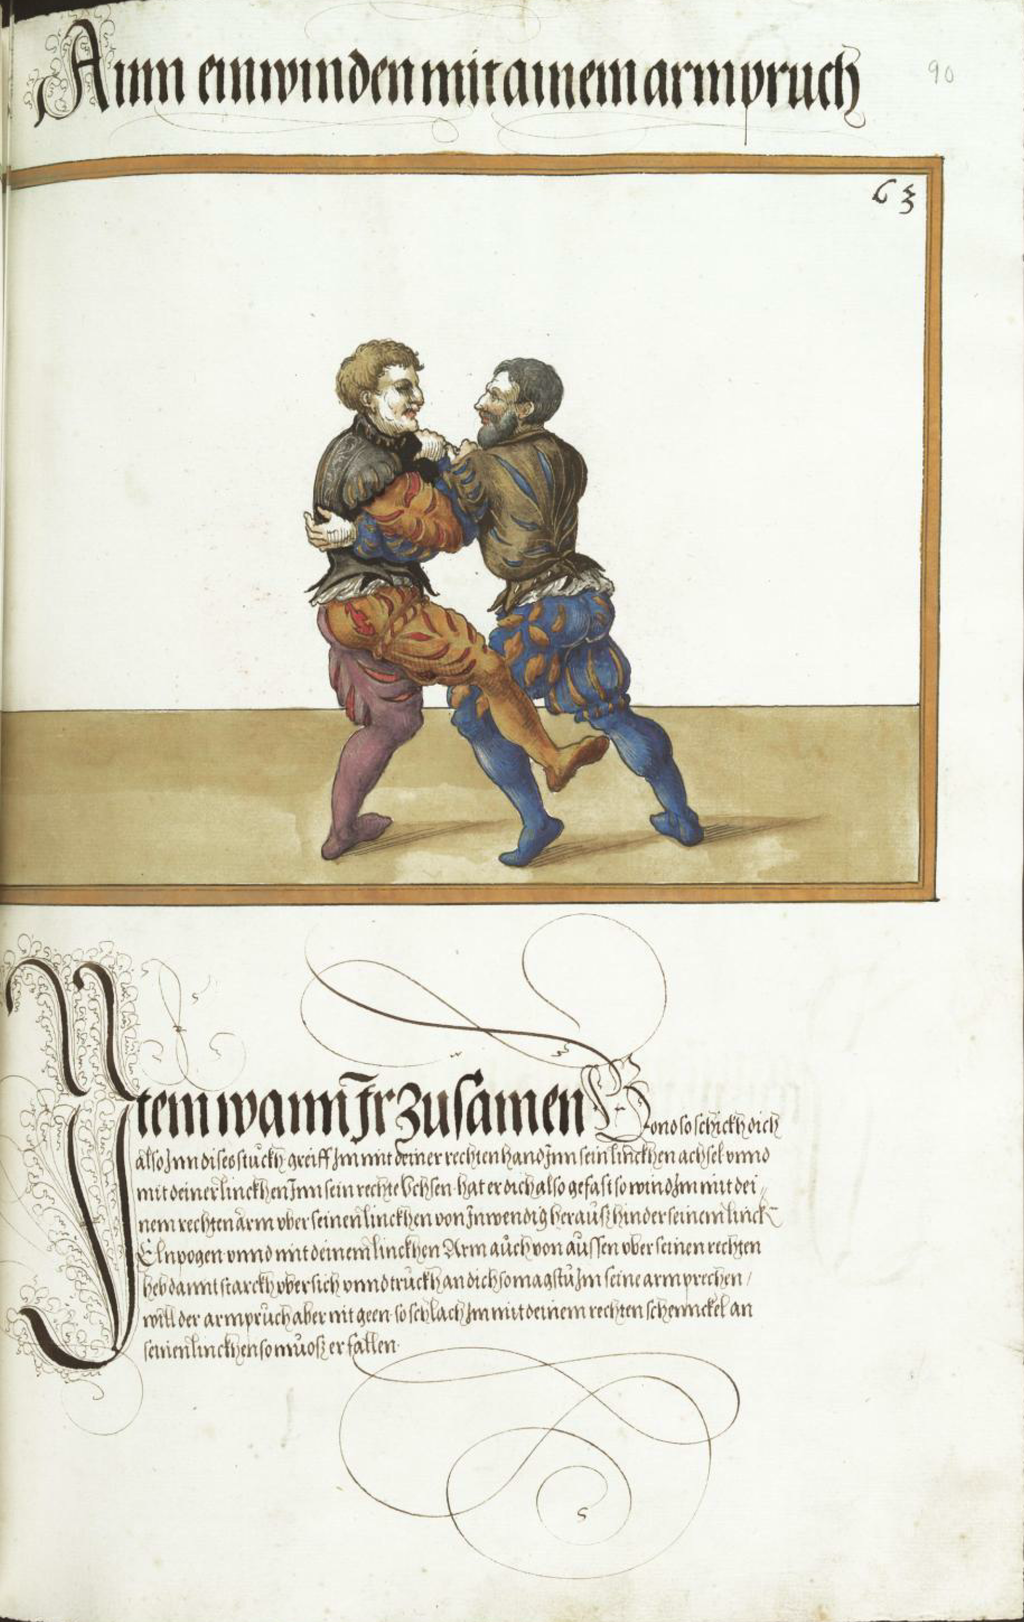 Ainn einwinden mit ainem armpruch
90
63
Item wann Ir zusamen
Gond so schickh dich
also Jnn dises stuckh greiff Jm mit deiner rechten hand Jnn sein linckhen achsel vnnd
mit deiner linckhen Jnn sein rechte Vchsen hat er dich also gefast so wind Jm mit dei„
nem rechten arm vber seinen linckhen von Jnwendig herauß hinder seinem linck„
Elnpogen vnnd mit deinem linckhen Arm auch von aussen vber seinen rechten
heb dannt starckh vbersich vnnd truckh an dich so magstu Jm seine arm prechen /
will der armpruch aber nit geen so schlach Jm mit deinem rechten schennckel an
seinen linckhen so muoß er fallen